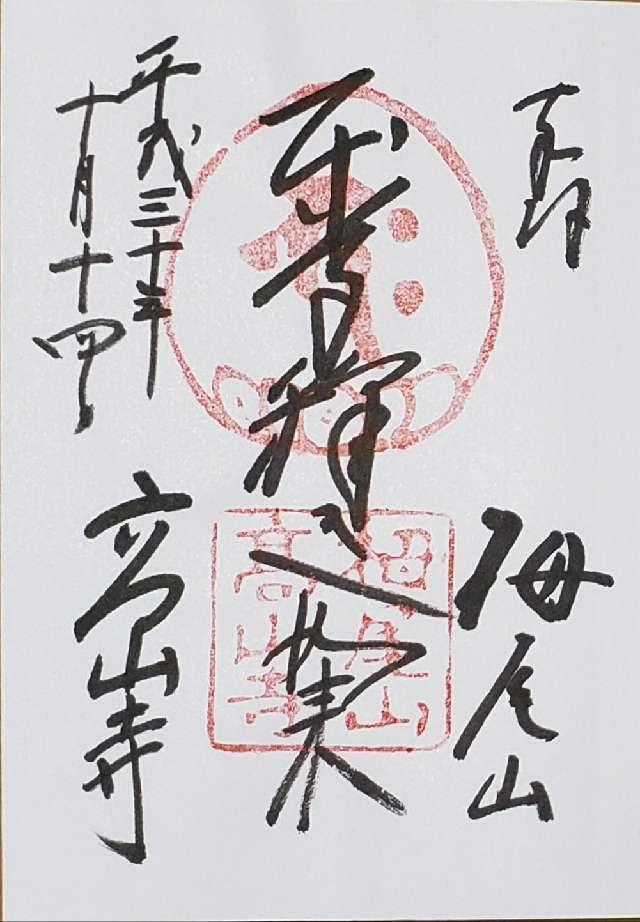 奉拝
栂尾山
釋迦如来
平成三十年
十月十四日
高山寺
栂尾山
高山寺